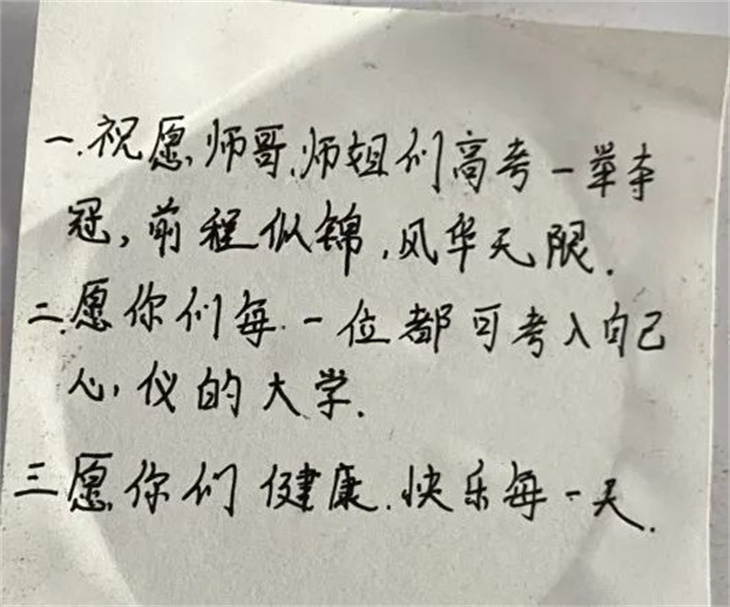 一.祝愿,师哥.师姐们高考一举夺
冠,前程似锦,风华无限.
二.愿你们每一位都可考入自己
心仪的大学.
三愿你们健康.快乐每一天.